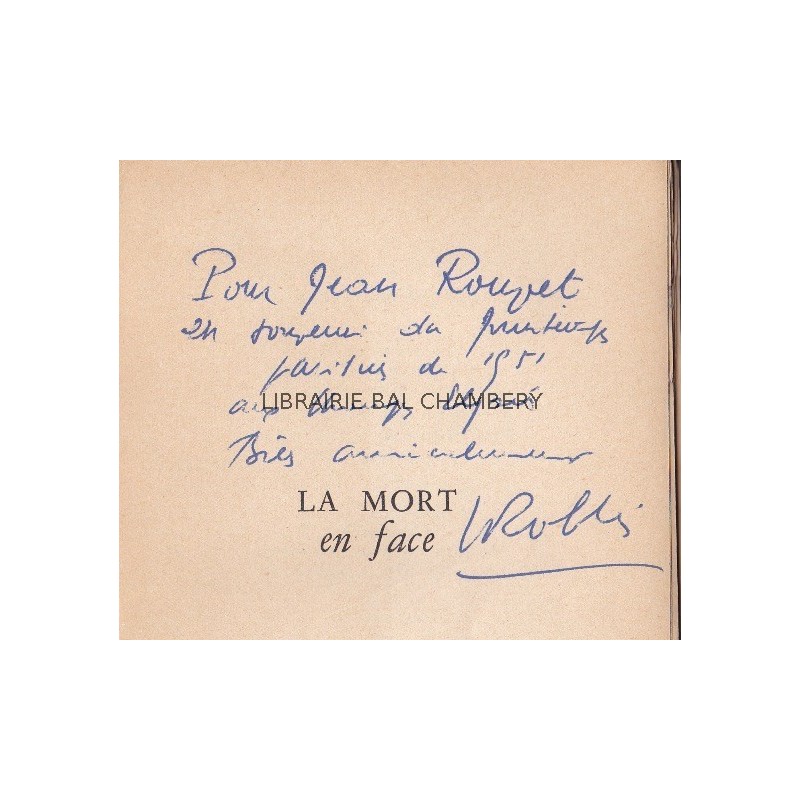 Pour Jean Rouget
en souvenir du printemps
parisien de 1951
aux Champs Elysées
LIBRAIRIE BAL CHAMBERY
Bien amicalement
LA MORT
en face